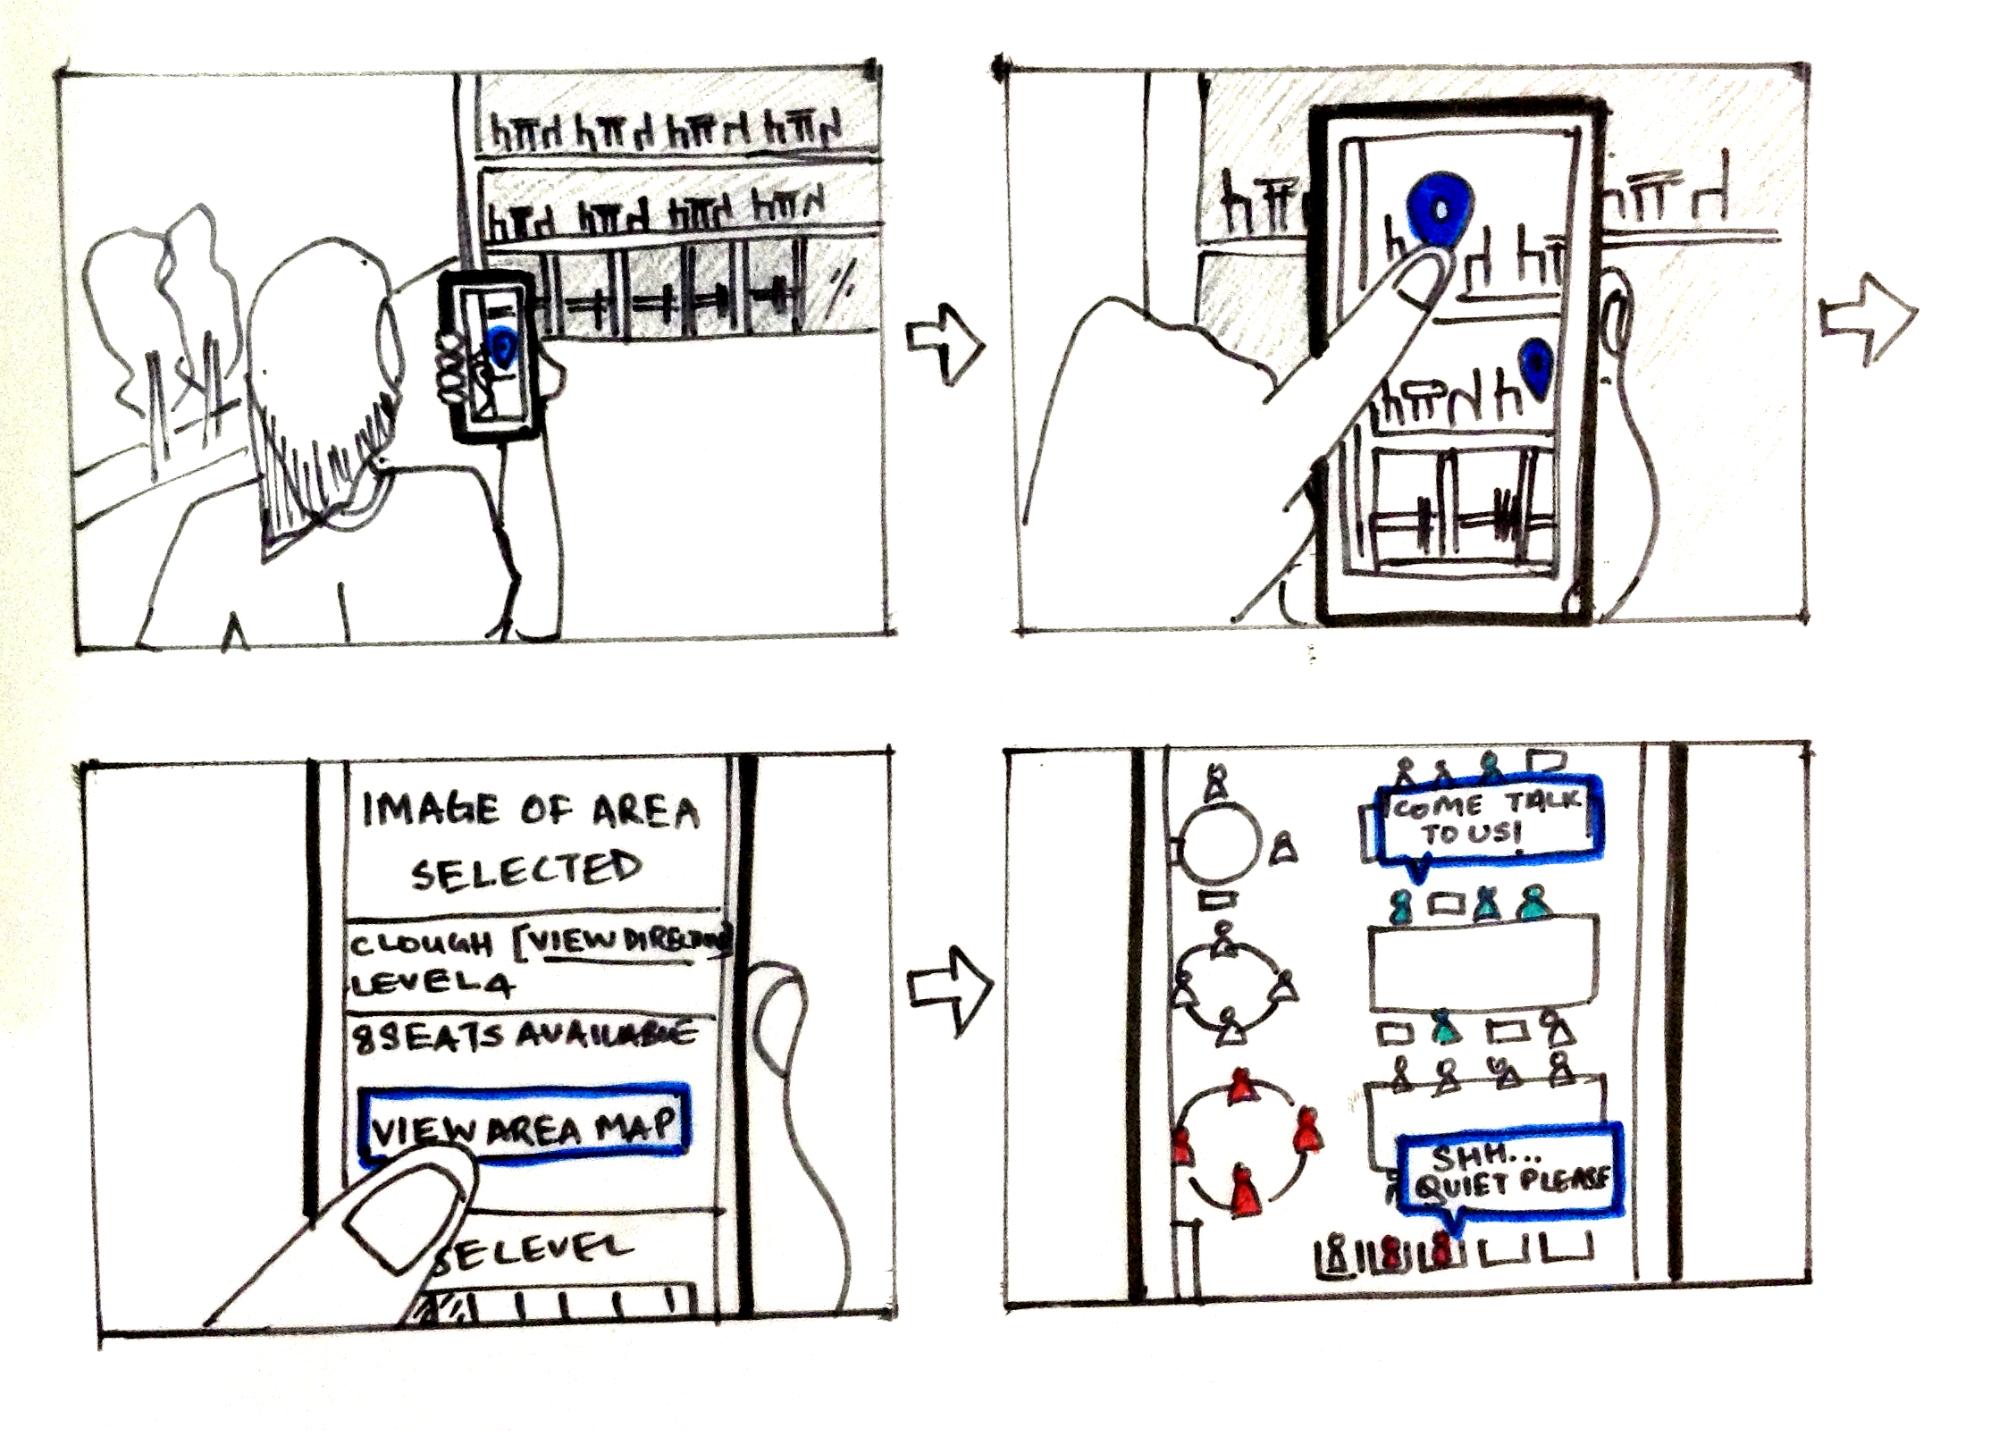 IMAGE OF AREA
SELECTED
CLOUGH [VIEW DIRECTION]
LEVEL 4
8 SEATS AVAILABLE
VIEW AREA MAP
SE LEVEL
COME TALK
TO US!
SHH...
QUIET PLEASE